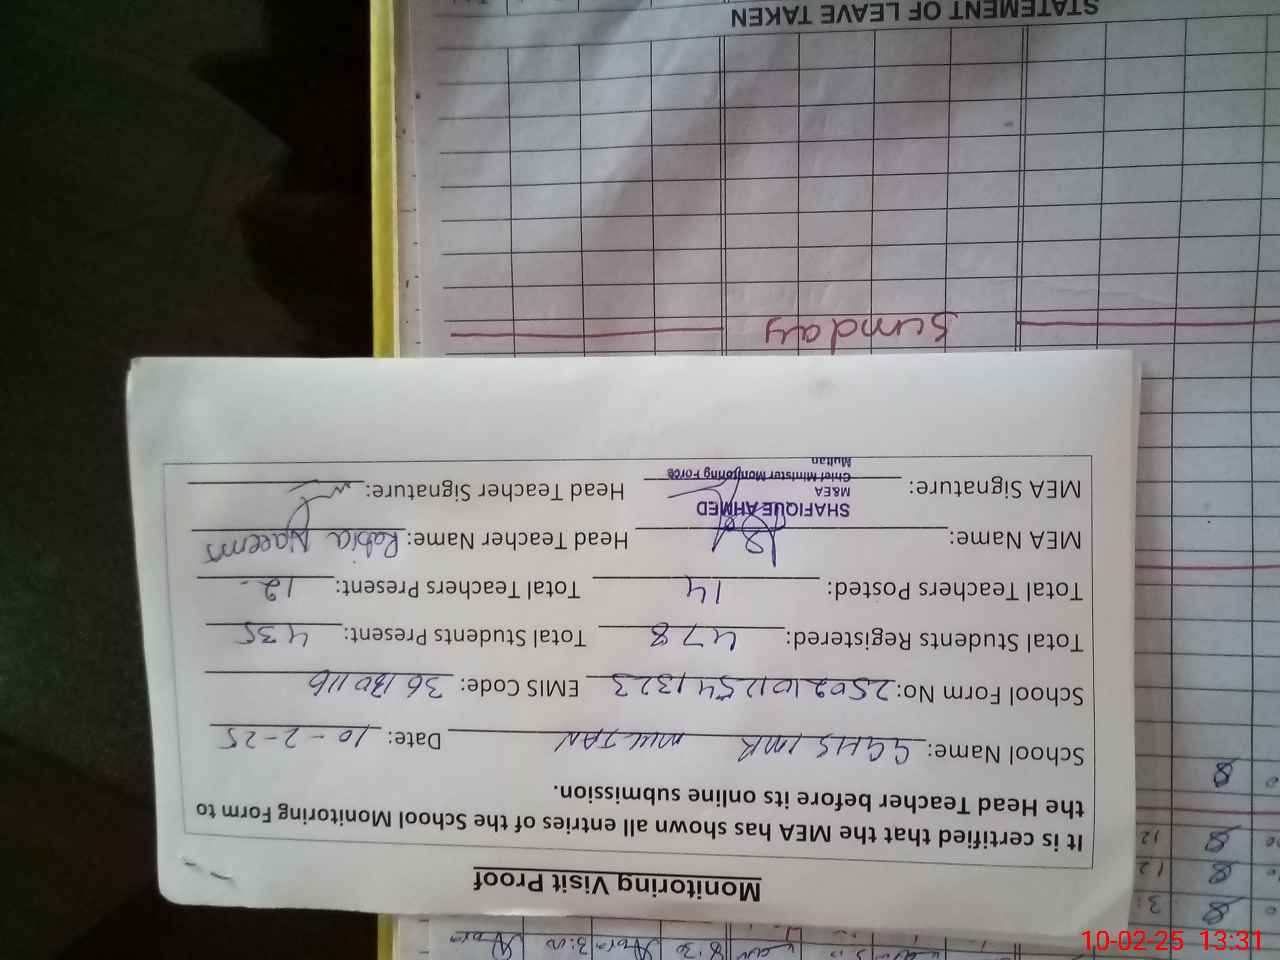 Monitoring Visit Proof
It is certified that the MEA has shown all entries of the School Monitoring Form to
the Head Teacher before its online submission.
School Name: GGHS IMR MULTAN Date: 10-2-25
School Form No: 250210112541323 EMIS Code: 36130116
Total Students Registered: 478 Total Students Present: 435
Total Teachers Posted: 14 Total Teachers Present: 12
MEA Name: Head Teacher Name: Rabia Naeem
SHAFIQUE AHMED
M&EA
Chief Minister Monitoring Force
Multan
MEA Signature: Head Teacher Signature:
Sunday
STATEMENT OF LEAVE TAKEN
10-02-25 13:31